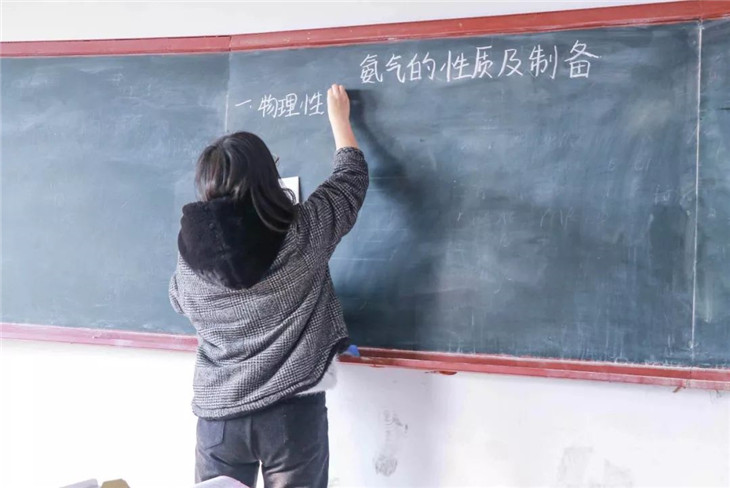 氨气的性质及制备
一.物理性